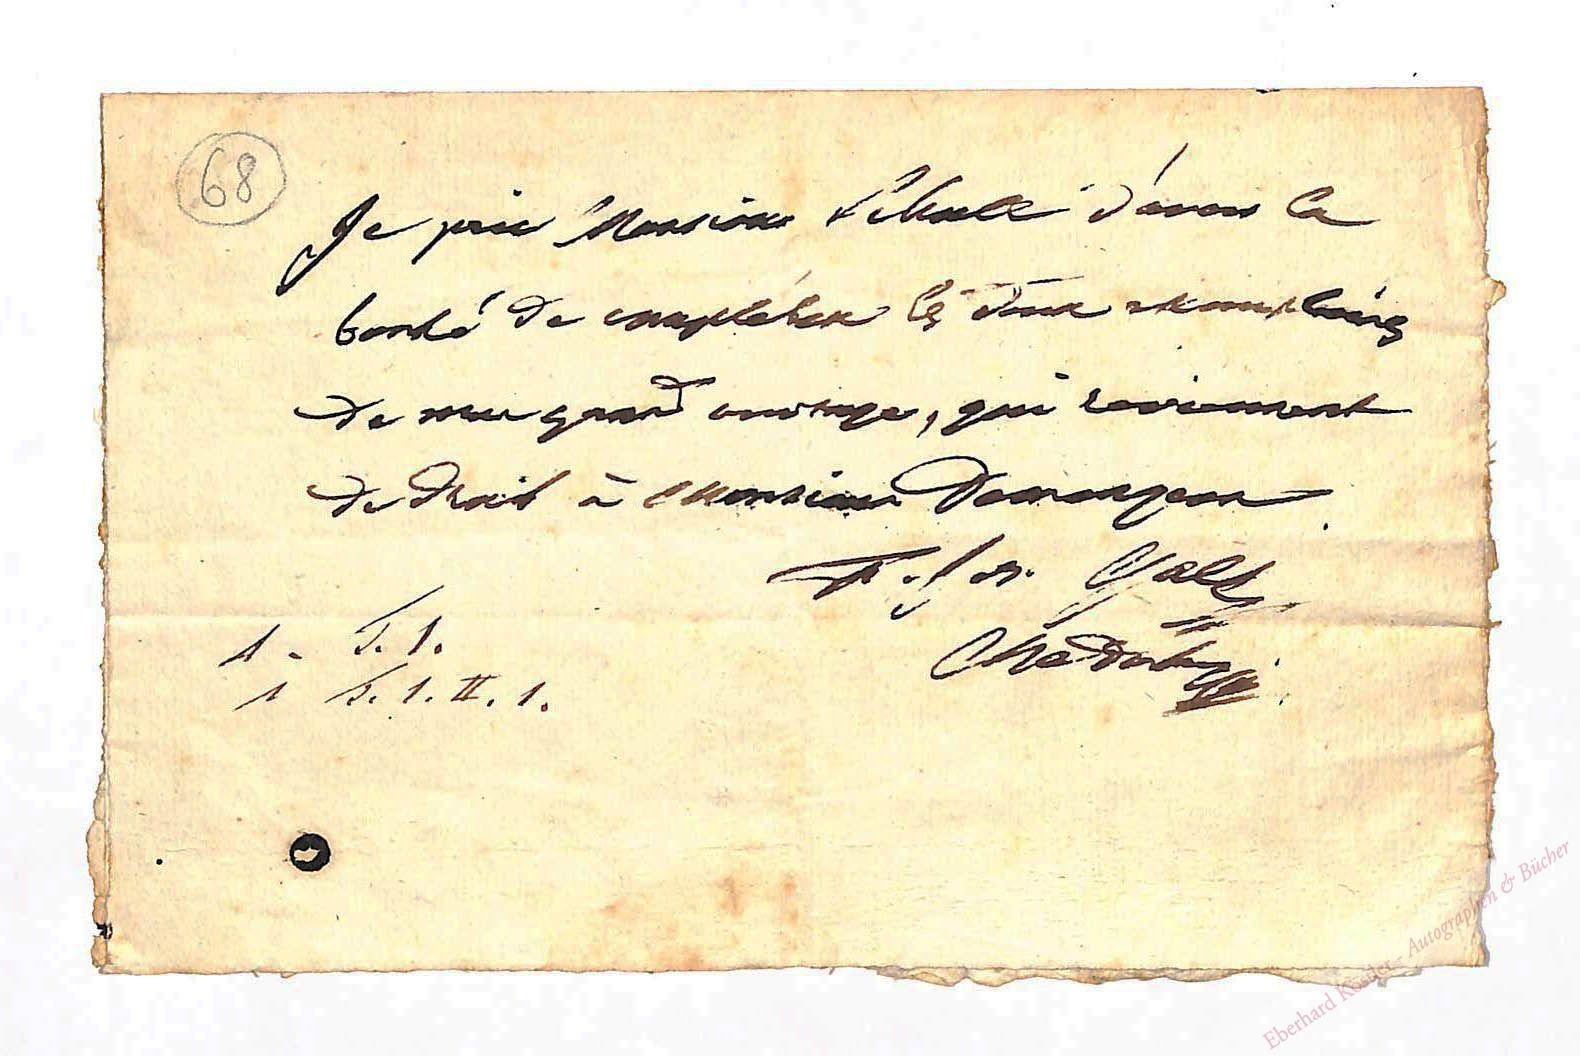 68
Je prie Monsieur Schoell d'avoir la
bonté de completter les deux exemplaires
de mon grand ouvrage, qui reviennent
de droit à Monsieur Demangeon
Gall
1 - T. I.
1 T. I. II. 1.
Eberhard Köstler - Autographen & Bücher